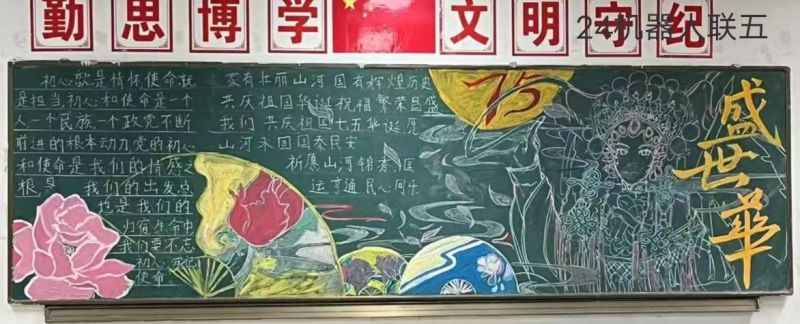 勤思博学
文明守纪
24机器人联五
初心就是情怀使命就
是担当初心和使命是一个
人一个民族一个政党不断
前进的根本动力党的初心
和使命是我们的情感之
根是 我们的出发点
也是我们的
归宿生命中
我们要不忘
初心牢记
使命
家有壮丽山河国有辉煌历史
共庆祖国华诞祝福繁荣昌盛
我们共庆祖国七五华诞愿
山河永固国泰民安
祈愿山河锦秀国
运亨通民心同乐
75
盛世華